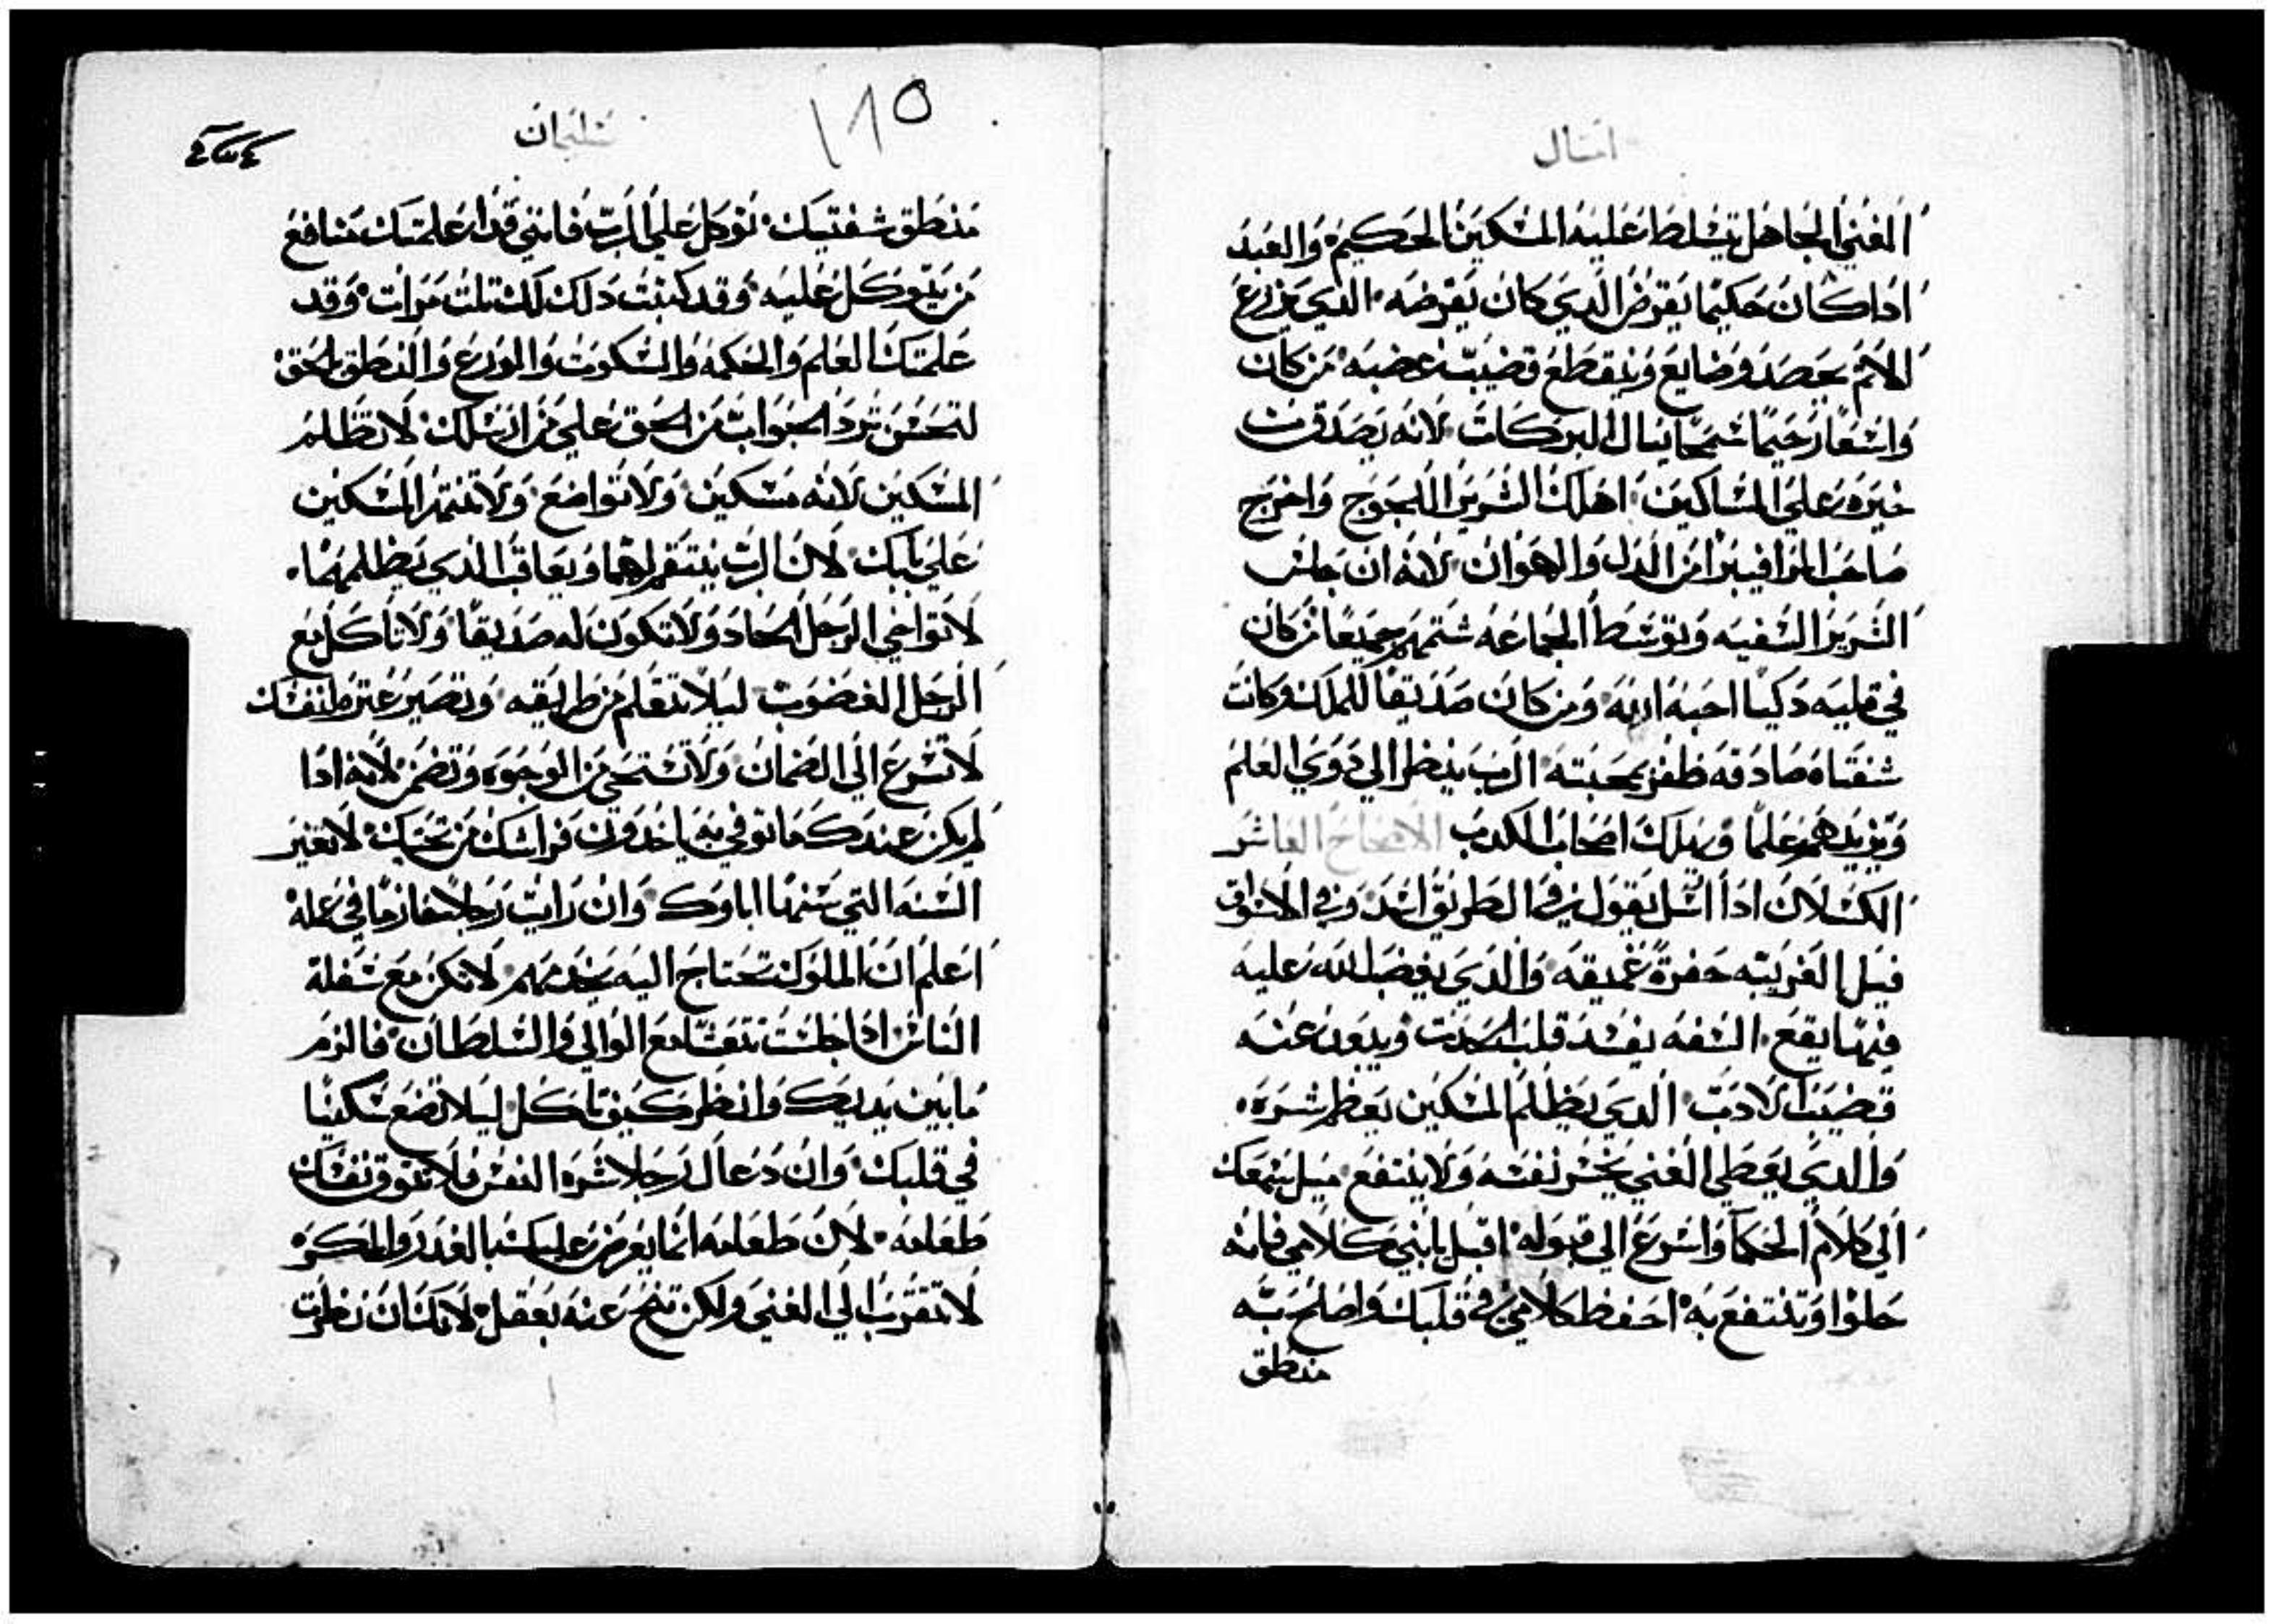 امثال
الغني الجاهل يتسلط عليه المسكين الحكيم والعبد
اذا كان حكيما يقرض الدي كان يقرضه الدي يزرع
الاثم يحصد وضايع وينقطع قضيب غضبه من كان
واسعًا رحيمًا سمحًا ينال البركات لانه يصدق من
خيره علي المساكين اهلك الشرير اللجوج واخرج
صاحب المرا فيبرا من الدل والهوان لانه ان جلس
الشرير السفيه وتوسط الجماعه شتمهم جميعًا من كان
في قلبه دكيا احبه اربه ومن كان صديقا للملك وكانت
شفتاه صادقه ظفر بمحبته الرب ينظر الي دوي العلم
ويزيدهم علمًا ويهلك اصحاب الكدب الاصحاح العاشر
الكسلان اذا ارسل يقول في الطريق اسد وفي الاسواق
قيل الغريبه حفرة عميقه والدي يغضب الله عليه
فيها يقع السفه يفسد قلب الحدت ويبعد عنه
قضيب الادب الدي يظلم المسكين يعظم شره
والدي يعطي الغني يخسر نفسه ولا ينتفع ميل سمعك
الي كلام الحكما واسرع الي قبوله اقبل يا بني كلامي فانه
حلوا وتنتفع به احفظ كلامي في قلبك واصلح به
منطق
سليمان
١٨٥
منطق شفتيك توكل علي الرب فانني قد اعلمتك منافع
من يتوكل عليه وقد كتبت دلك لك تلت مرات وقد
علمتك العلم والحكمه والسكوت والورع والنطق الحق
لتحسن ترد الجواب من الحق علي من ارسلك لا تظلم
المسكين لانه مسكين ولا تواضع ولا تنتهر المسكين
علي بابك لان الرب ينتقم لهما ويعاقب الدي يظلمهما
لا تواخي الرجل الحاد ولا تكون له صديقًا ولا تاكل مع
الرجل الغضوب ليلا تتعلم من طرايقه وتصير عتره لنفسك
لا تسرع الي الضمان ولا تستحي من الوجوه وتضمن لانه ادا
لم يكن عندك ما توفي به ياخدون فراشك من تحتك لا تغير
السنه التي سنها اباوك وان رايت رجلا حازمًا في عمله
اعلم ان الملوك تحتاج اليه يخدمهم لا تكن مع سفلة
الناس ادا جلست تتعشا مع الوالي والسلطان فالزم
ما بين يديك وانظر كيف تاكل ليلا تضع سكينًا
في قلبك وان دعاك رجلا شره النفس فلا تدوق نفسك
طعامه لان طعامه انما يعرض عليك بالغدر والمكر
لا تقترب الي الغني ولكن تنح عنه بعقل لانك ان نظرت